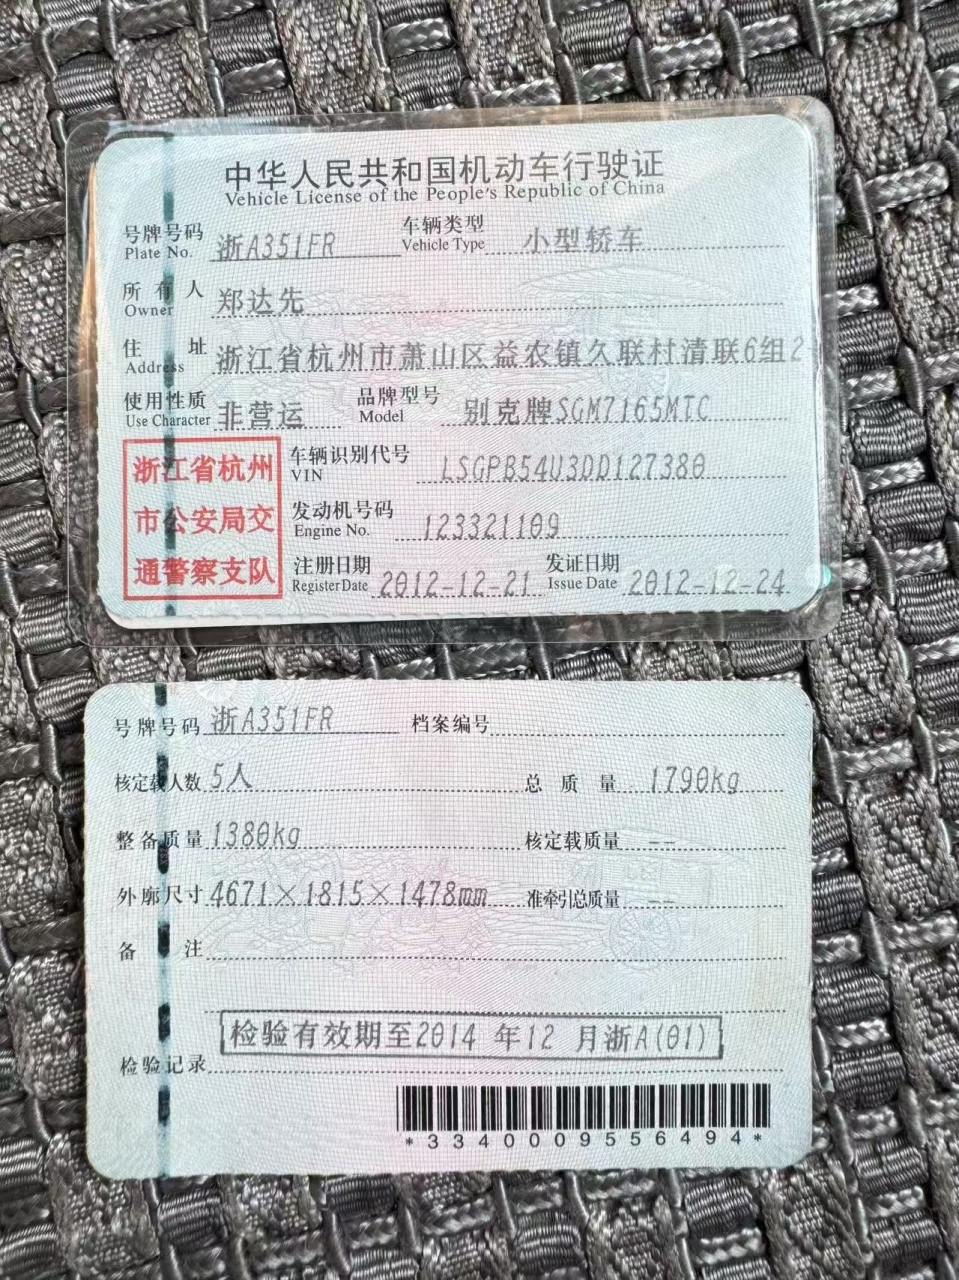 中华人民共和国机动车行驶证
Vehicle License of the People's Republic of China
号牌号码 浙A351FR 车辆类型 小型轿车
Plate No. Vehicle Type
所有人 郑达先
Owner
住址 浙江省杭州市萧山区益农镇久联村清联6组2
Address
使用性质 非营运 品牌型号 别克牌SGM7165MTC
Use Character Model
浙江省杭州
市公安局交
通警察支队
车辆识别代号 LSGPB54U3DD127380
VIN
发动机号码 123321109
Engine No.
注册日期 2012-12-21 发证日期 2012-12-24
Register Date Issue Date
号牌号码 浙A351FR 档案编号
核定载人数 5人 总质量 1790kg
整备质量 1380kg 核定载质量 --
外廓尺寸 4671×1815×1478mm 准牵引总质量 --
备注
检验有效期至2014 年12 月浙A(01)
检验记录
*3340009556494*